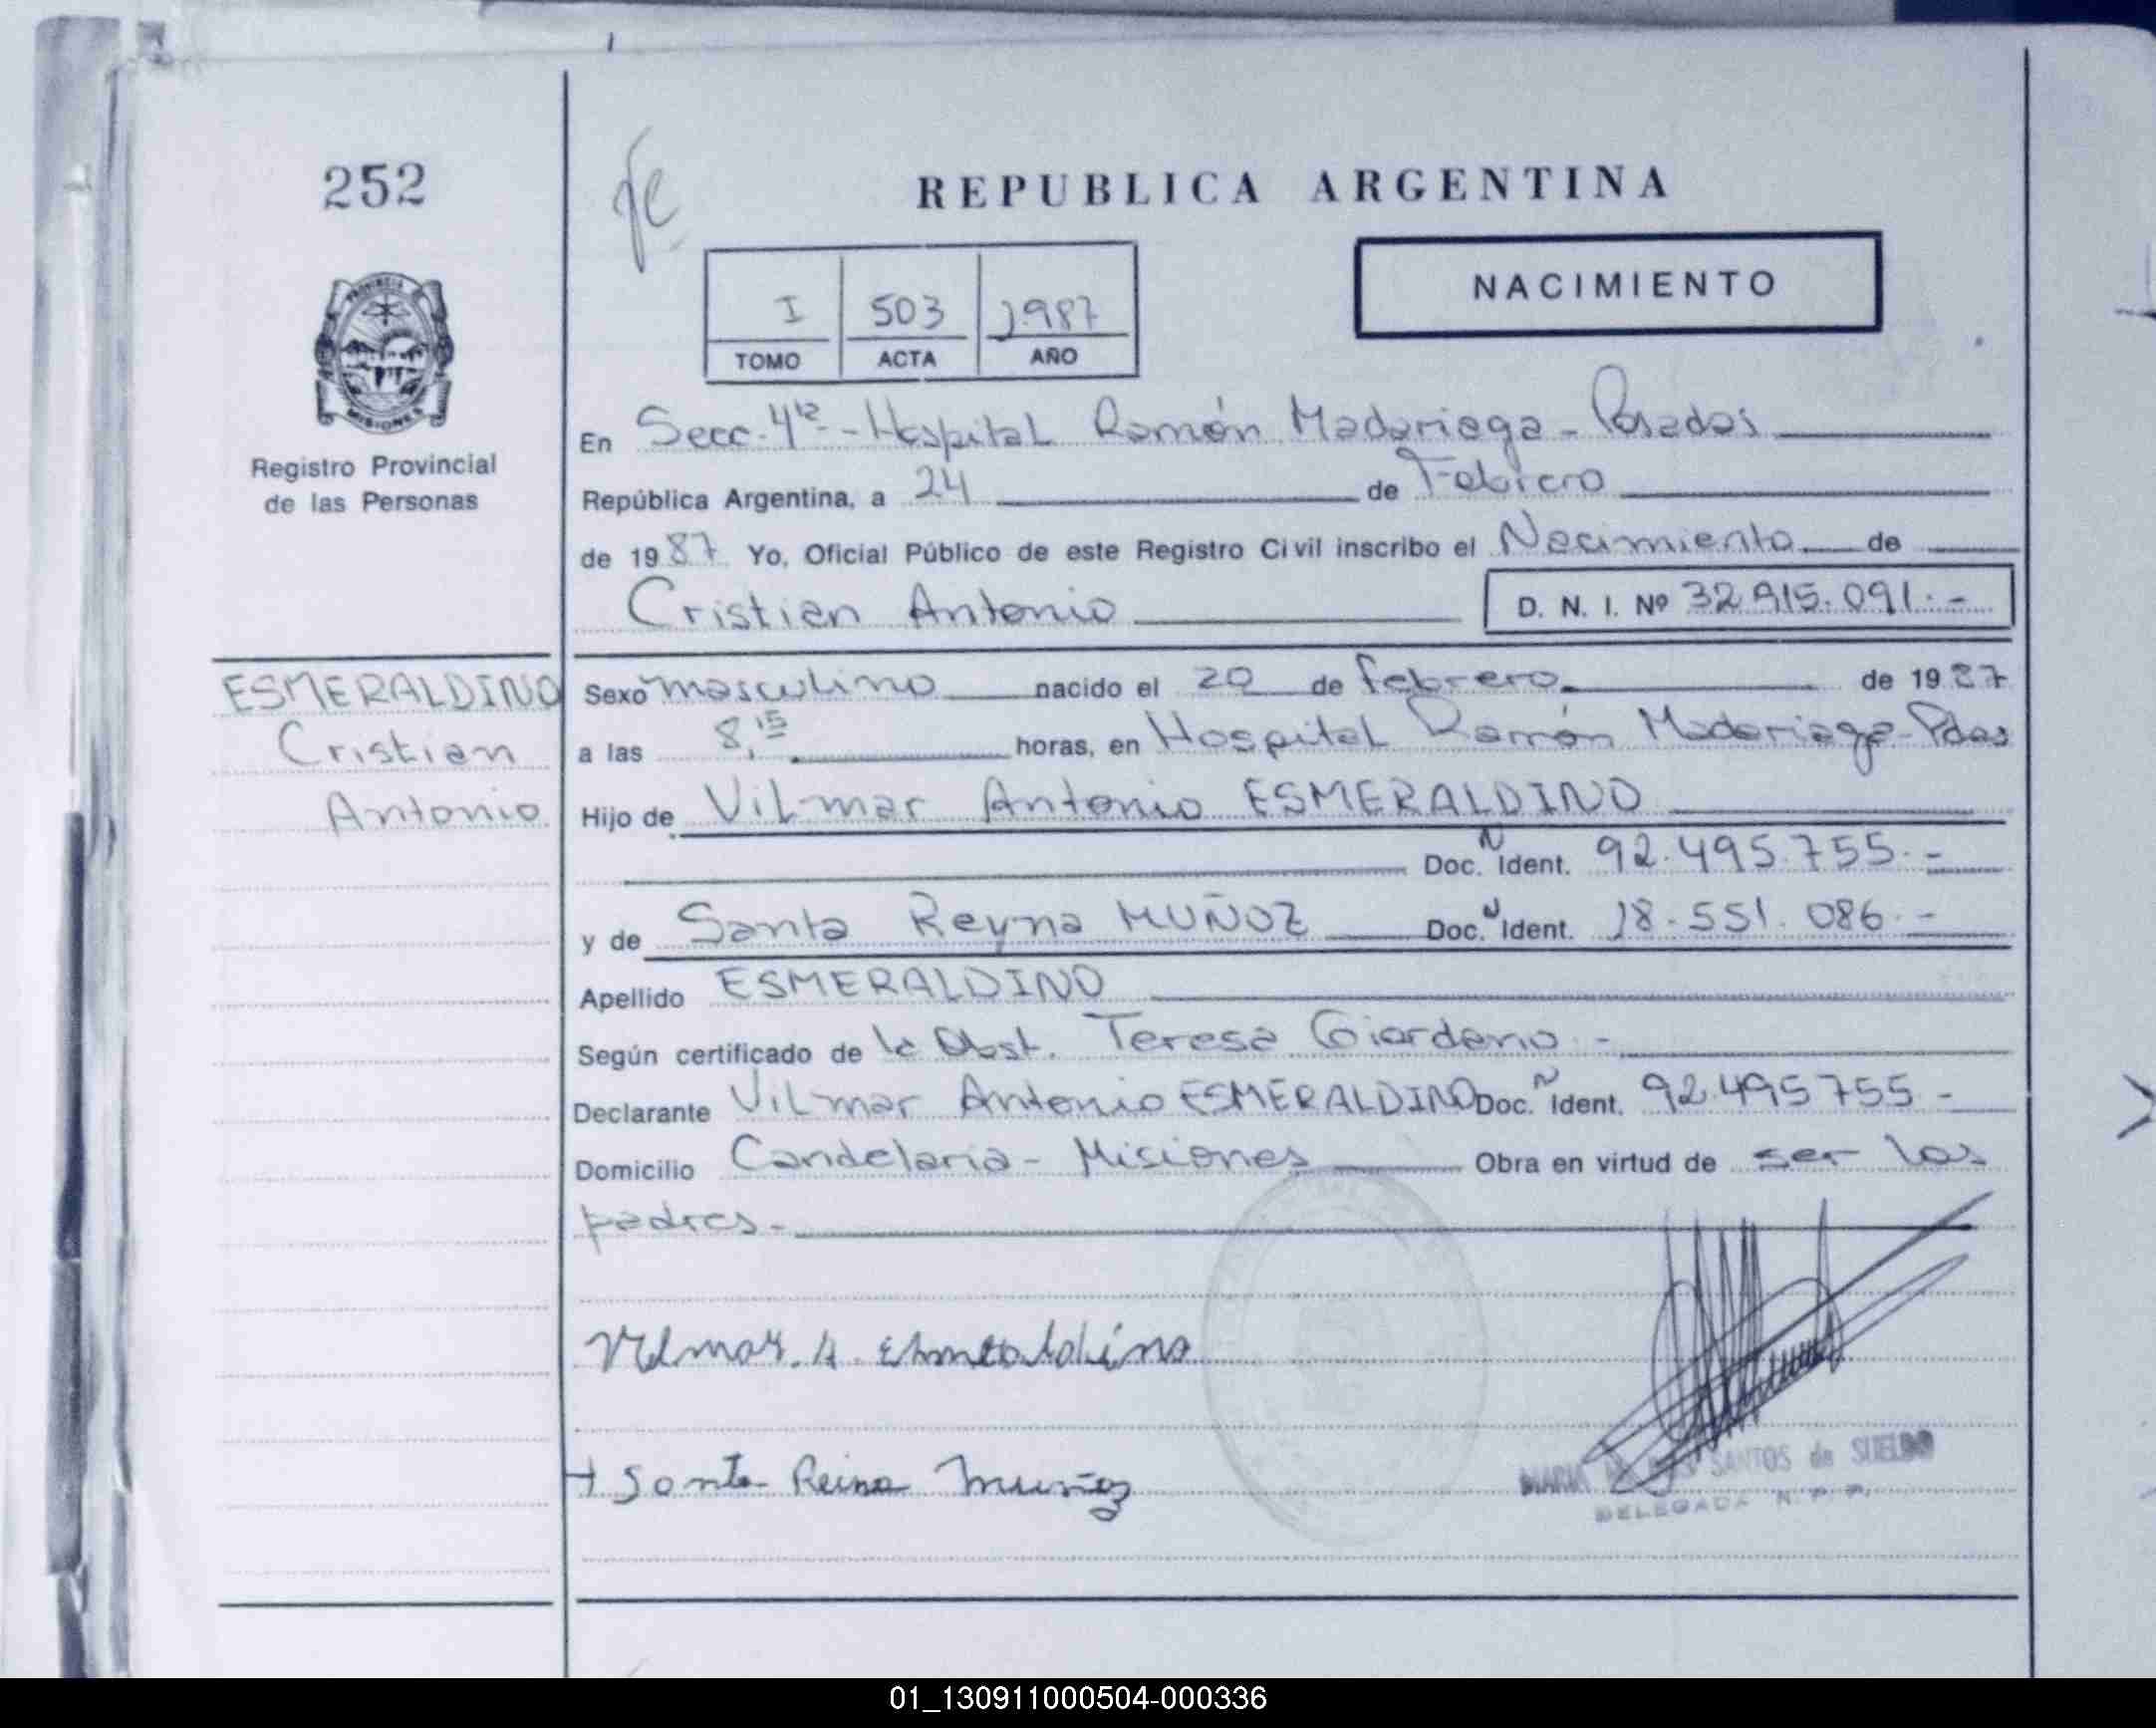 252
REPUBLICA ARGENTINA
NACIMIENTO
I 503 1987
TOMO ACTA AÑO
PROVINCIA
MISIONES
Registro Provincial
de las Personas
En Secc. 4ta - Hospital Ramón Madariaga - Posadas
República Argentina, a 24 de Febrero
de 1987. Yo, Oficial Público de este Registro Civil inscribo el Nacimiento de
Cristian Antonio D. N. I. Nº 32.915.091.-
ESMERALDINO
Cristian
Antonio
Sexo masculino nacido el 20 de febrero de 1987
a las 8,15 horas, en Hospital Ramón Madariaga - Pdas
Hijo de Vilmar Antonio ESMERALDINO
Doc. N Ident. 92.495.755.-
y de Santa Reyna MUÑOZ Doc. N Ident. 18.551.086.-
Apellido ESMERALDINO
Según certificado de la Obst. Teresa Giordano -
Declarante Vilmar Antonio ESMERALDINO Doc. N Ident. 92.495755-
Domicilio Candelaria - Misiones Obra en virtud de ser los
padres.-
Vilmar. A. Esmeraldino
+ Santa Reina Muñoz
MARIA SANTOS de SUELDO
DELEGADA
01_130911000504-000336